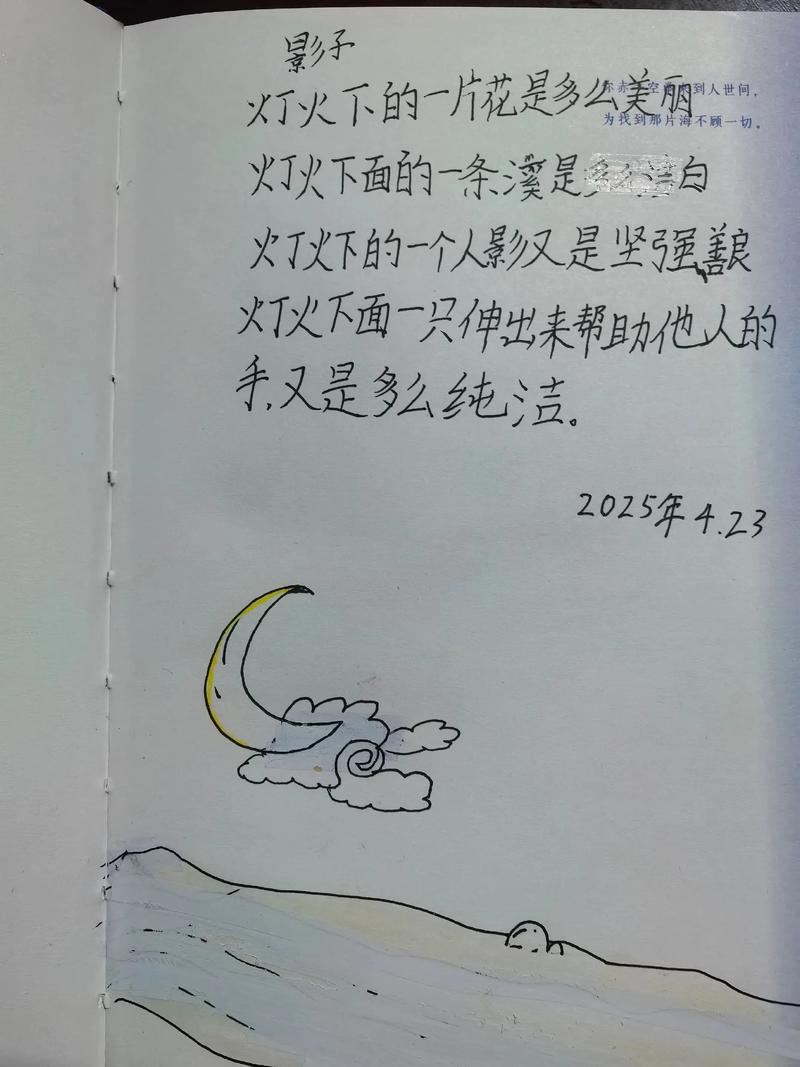 影子
你赤 空 到人世间，
灯火下的一片花是多么美丽
为找到那片海不顾一切。
灯火下面的一条溪是多么洁白
灯火下的一个人影又是坚强善良
灯火下面一只伸出来帮助他人的
手,又是多么纯洁。
2025年4.23